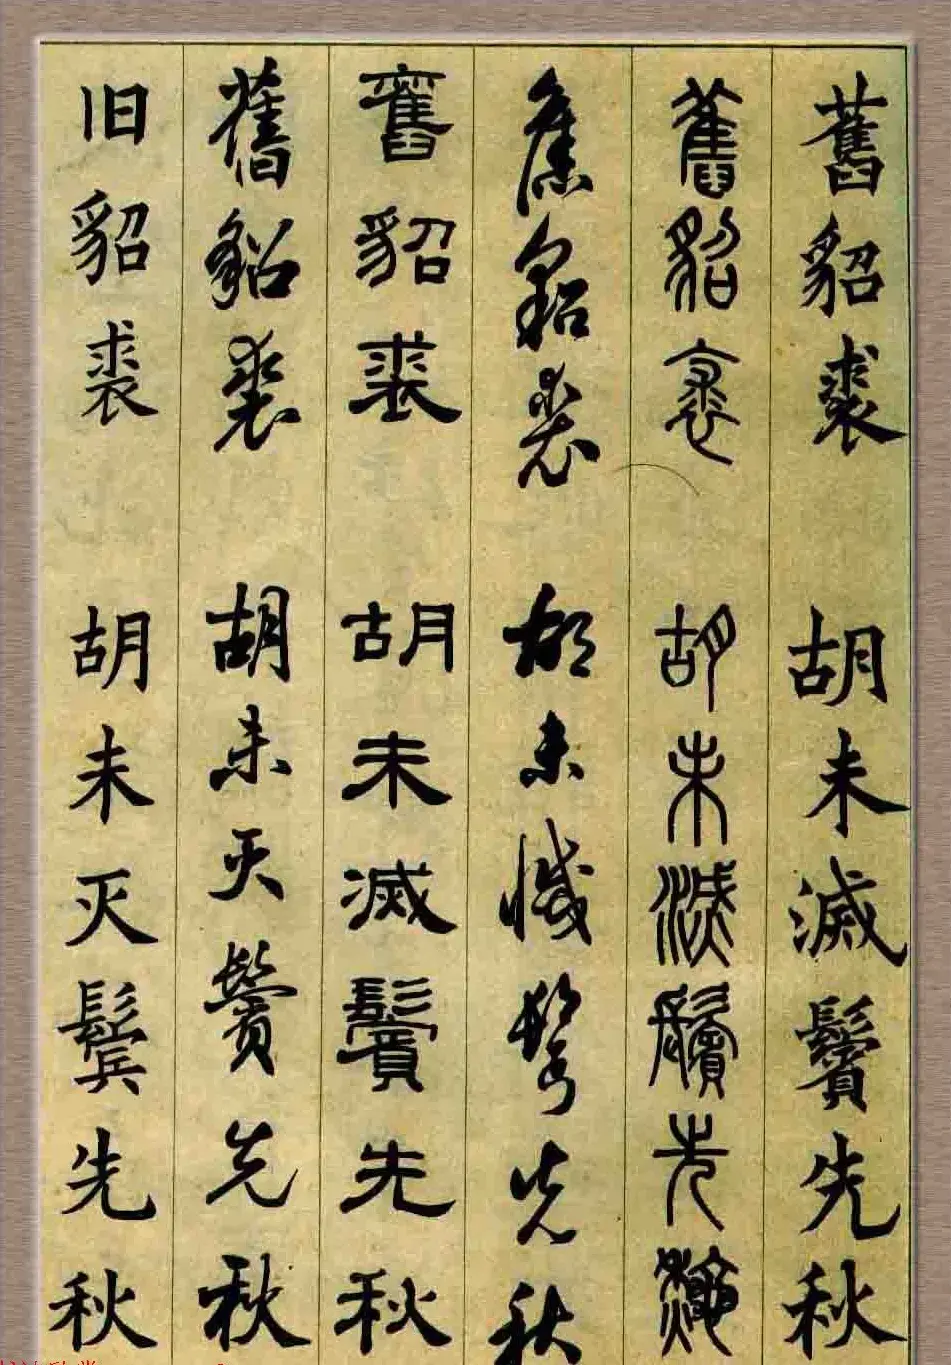 舊貂裘 胡未滅鬢先秋
舊貂裘 胡未滅鬢先秋
舊貂裘 胡未滅鬢先秋
舊貂裘 胡未滅鬢先秋
舊貂裘 胡未灭鬢先秋
旧貂裘 胡未灭鬓先秋